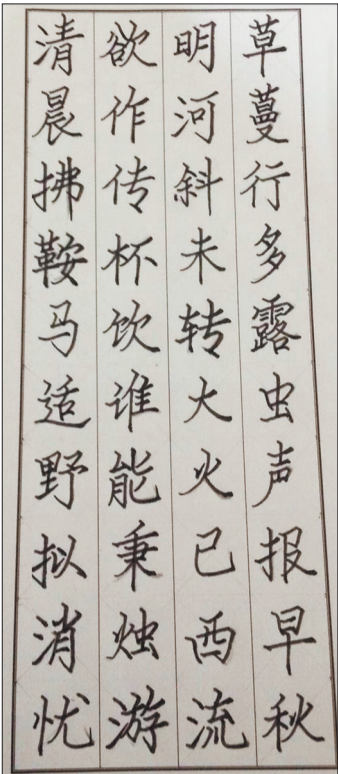 草蔓行多露虫声报早秋
明河斜未转大火已西流
欲作传杯饮谁能秉烛游
清晨拂鞍马适野拟消忧